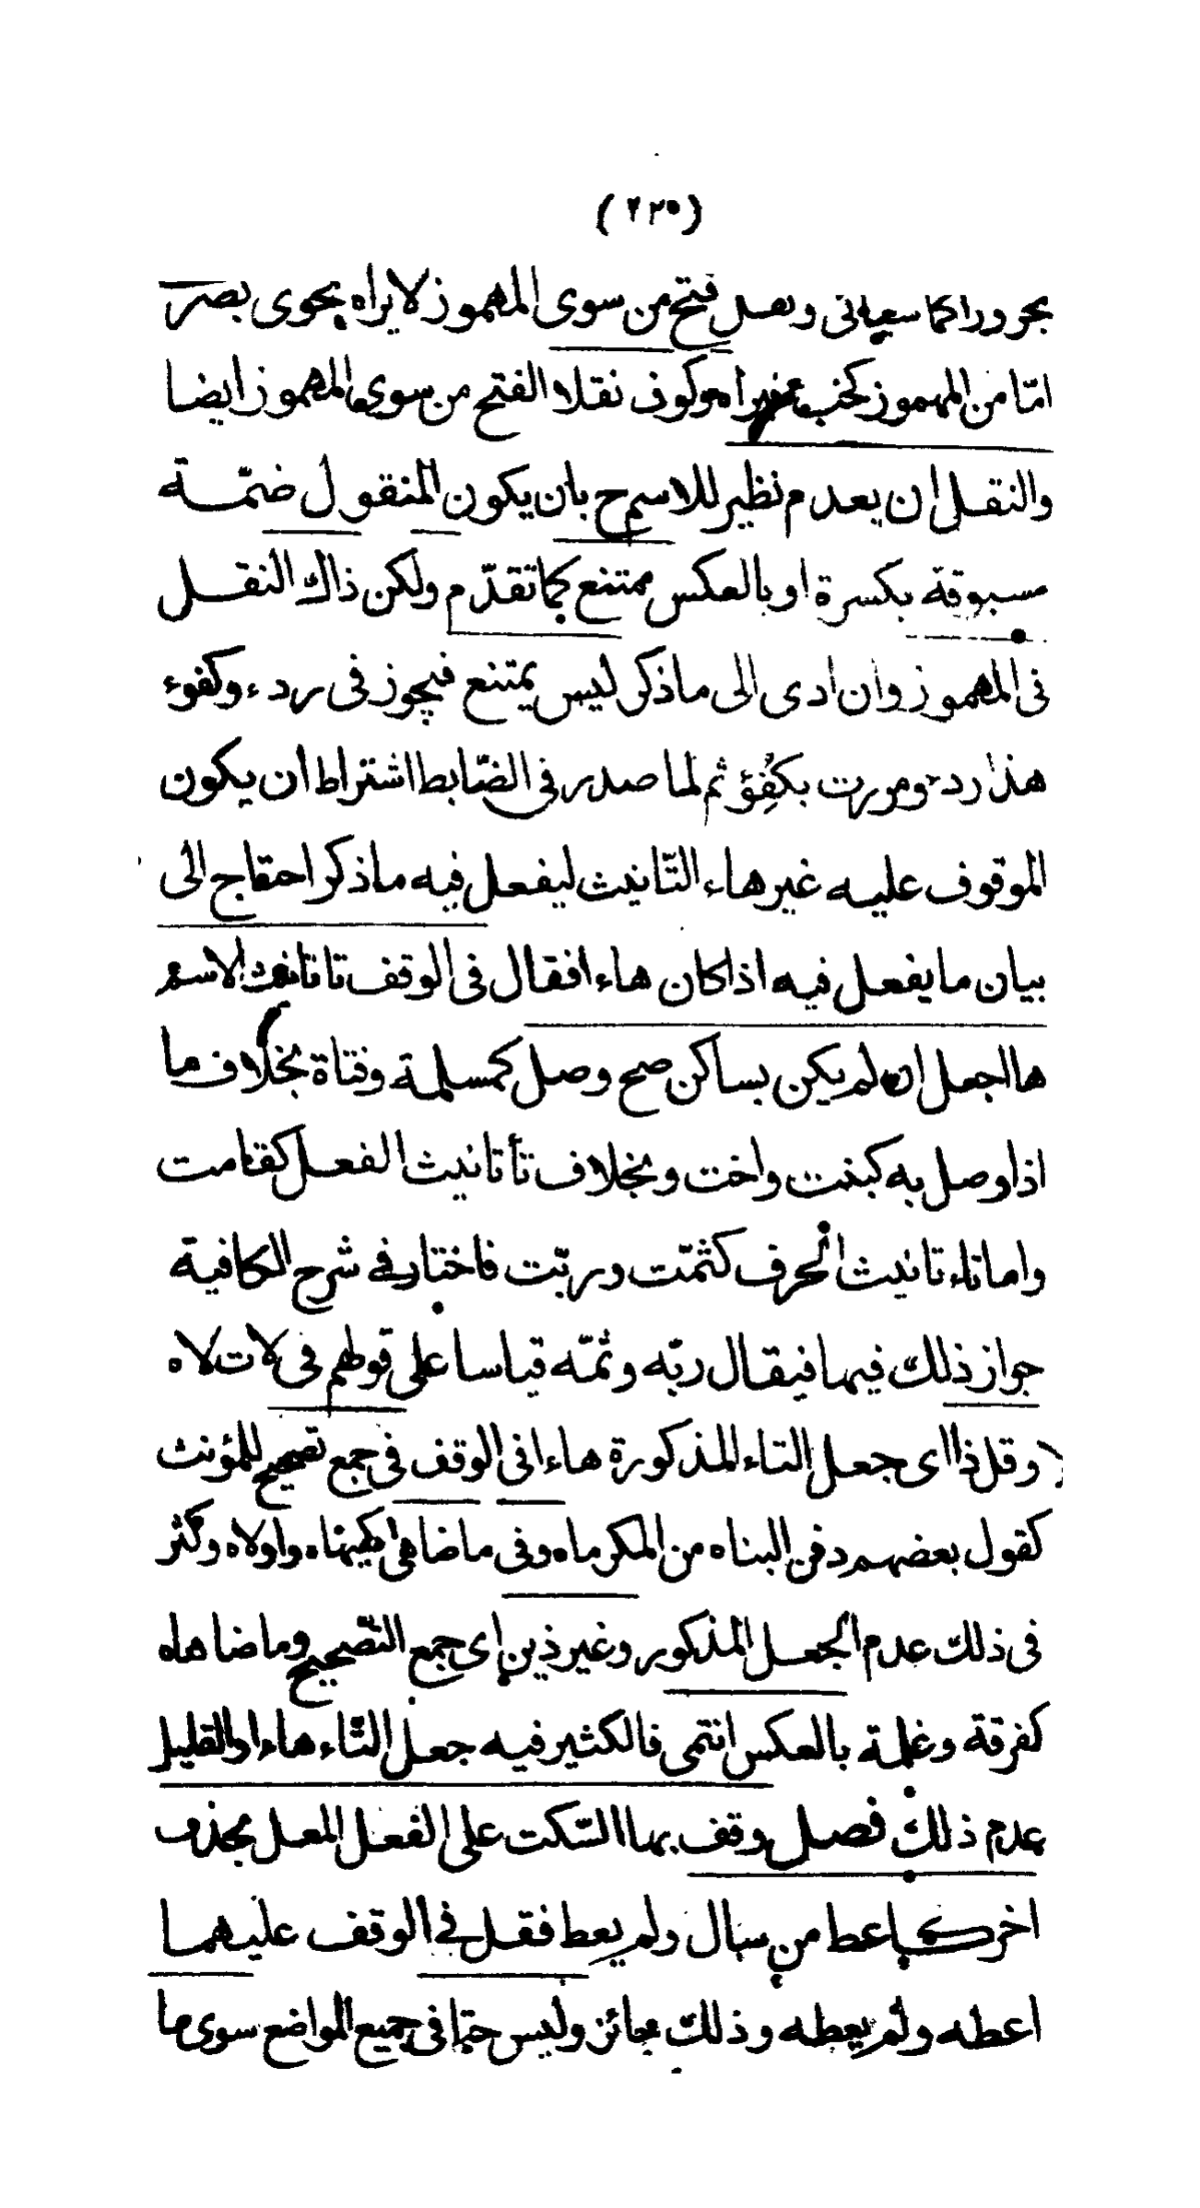 (٢٣٥)
مجرورا كما سيأتى ونقل فتح من سوى المهموز لا يراه نحوى بصرى
امّا من المهموز كخبء فيراه وكوف نقلا الفتح من سوى المهموز ايضا
والنقل ان يعدم نظير للاسم ح بان يكون المنقول ضمّة
مسبوقة بكسرة او بالعكس ممتنع كما تقدّم ولكن ذاك النقل
فى المهموز وان ادى الى ما ذكر ليس يمتنع فيجوز فى ردء وكفوء
هذا ردء ومررت بكفؤ ثم لما صدر فى الضّابط اشتراط ان يكون
الموقوف عليه غير هاء التّانيث ليفعل فيه ما ذكر احتاج الى
بيان ما يفعل فيه اذا كان هاء فقال فى الوقف تا تانيث الاسم
ها اجعل ان لم يكن بساكن صح وصل كمسلمة وفتاة بخلاف ما
اذا وصل به كبنت واخت وبخلاف تأ تانيث الفعل كقامت
واما تاء تانيث الحرف كثمّت وربّت فاختار فى شرح الكافية
جواز ذلك فيهما فيقال ربّه وثمّه قياسا على قولهم فى لات لاه
وقل ذا اى جعل التاء المذكورة هاء فى الوقف فى جمع تصحيح للمؤنث
كقول بعضهم دفن البناه من المكرماه وفى ما ضاهى كهيهاه واولاه وكثر
فى ذلك عدم الجعل المذكور وغير ذين اى جمع التّصحيح وما ضاهاه
كفرقة وغلمة بالعكس انتمى فالكثير فيه جعل التّاء هاء والقليل
عدم ذلك فصل وقف بها السّكت على الفعل المعل بحذف
اخر كاعط من سال ولم يعط فقل فى الوقف عليهما
اعطه ولم يعطه وذلك جائز وليس حتما فى جميع المواضع سوى ما